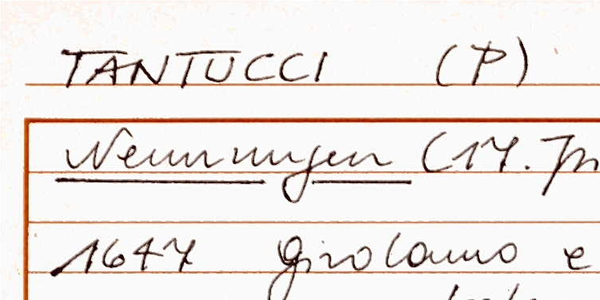 TANTUCCI (P)
Nennungen (17. Jh
1647 Girolamo e